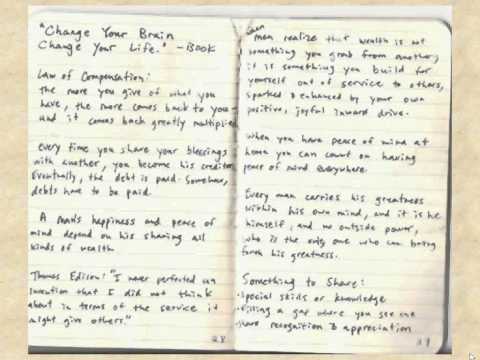 "Change Your Brain
Change Your Life." - Book
Law of Compensation:
The more you give of what you
have, the more comes back to you -
and it comes back greatly multiplied
Every time you share your blessings
with another, you become his creditor
Eventually, the debt is paid. Somehow,
debts have to be paid.
A man's happiness and peace of
mind depend on his sharing all
kinds of wealth
Thomas Edison: "I never perfected an
invention that I did not think
about in terms of the service it
might give others."
28
when
men realize that wealth is not
something you grab from another,
it is something you build for
yourself out of service to others,
sparked & enhanced by your own
positive, joyful inward drive.
When you have peace of mind at
home you can count on having
peace of mind everywhere.
Every man carries his greatness
within his own mind, and it is he
himself, and no outside power,
who is the only one who can bring
forth his greatness.
Something to Share:
- Special skills or knowledge
- Filling a gap where you see one
- share recognition & appreciation